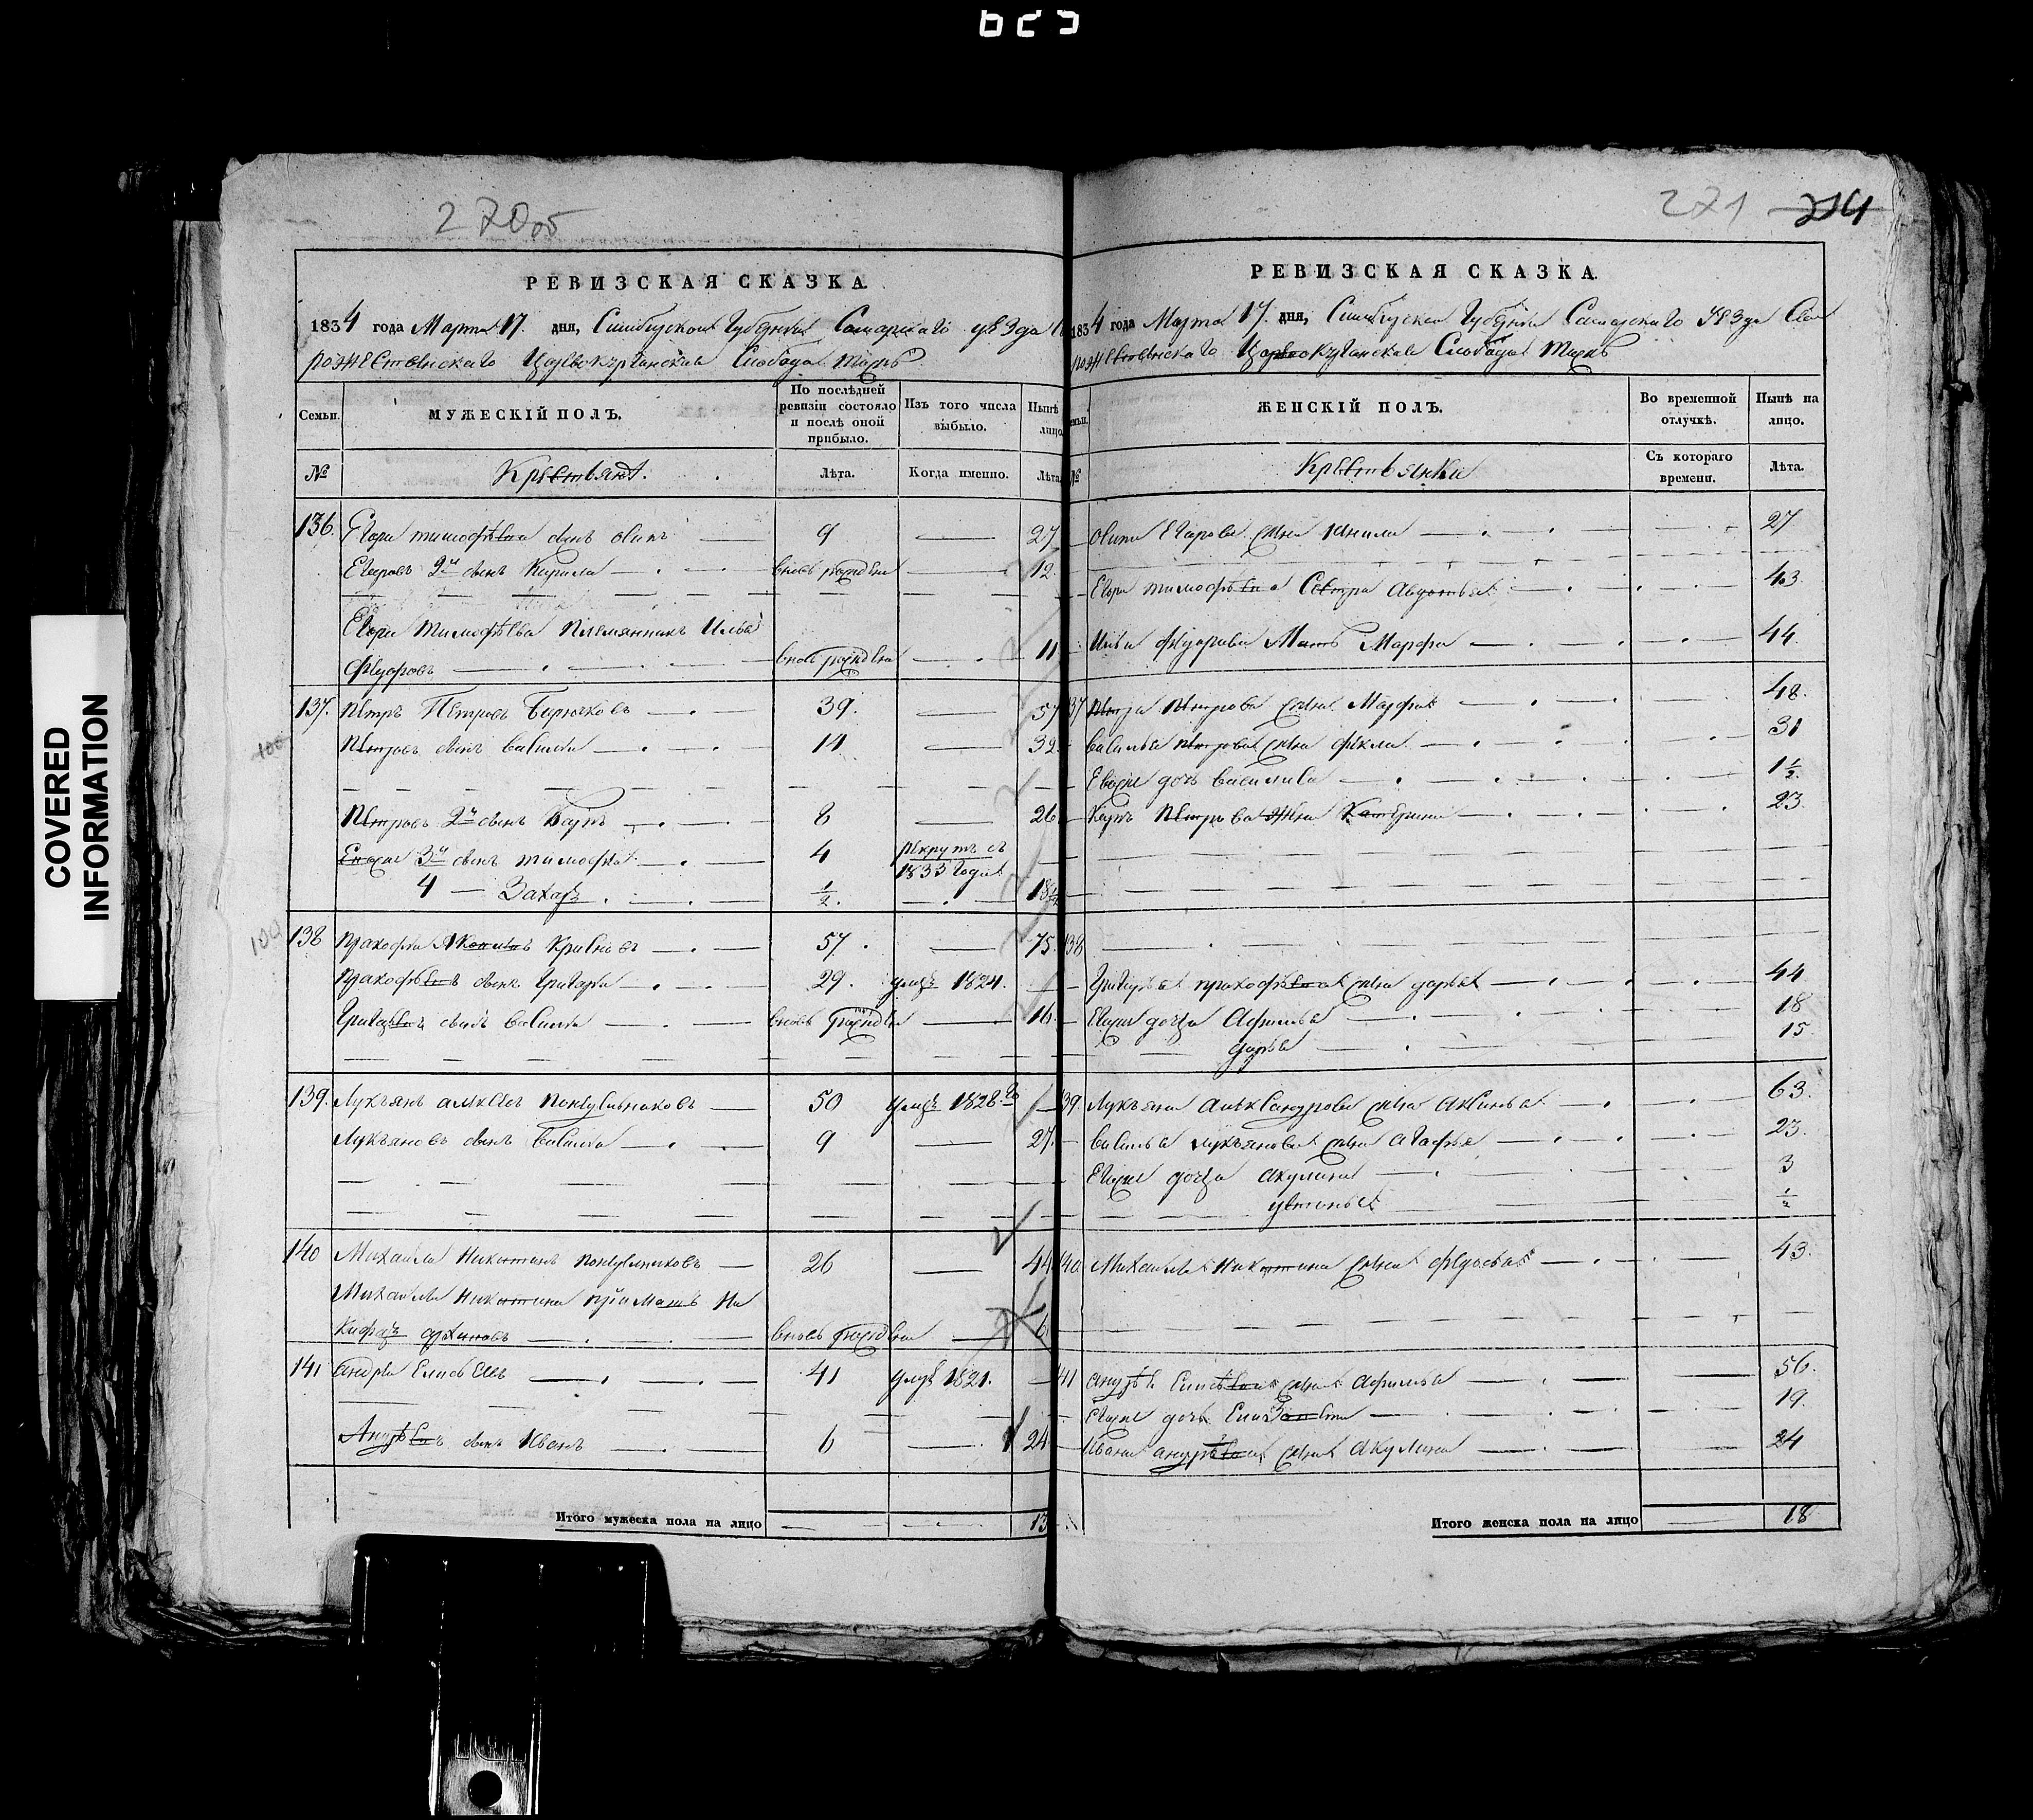 270 об
РЕВИЗСКАЯ СКАЗКА.
1834 года Марта 17. дня, Симбирской Губернии Самарского уезда
рожественскаго Царевокурганская Слобода тожъ
Семьи. МУЖЕСКІЙ ПОЛЪ. По послѣдней ревизіи состояло и послѣ оной прибыло. Изъ того числа выбыло. Нынѣ лицо.
№ Крестьянъ. Лѣта. Когда именно. Лѣта.
136. Егора тимофѣева сынъ осипъ 9 27
Егоровъ 2й сынъ Кирила вновь рожденъ 12.
Егора тимофѣева племянникъ Илья
федоровъ вновь рожденъ 11
137. Петръ Петровъ Бирючковъ 39. 57
Петровъ сынъ василей 14 32
Петровъ 2й сынъ Карпъ 8 26
Егоже 3й сынъ тимофей 4 рекрутъ съ
1833 года
4 — Захаръ 1/2. 18 1/2
138 прокофей Яковлевъ Кривовъ 57. 75.
прокофьевъ сынъ григорей 29. умеръ 1824.
григорьевъ сынъ василей вновь рожденъ 16.
139. Лукьянъ алексеевъ понедельниковъ 50 умеръ 1828го
Лукьяновъ сынъ василей 9 27.
140 Михайла никитинъ понедельниковъ 26 44
Михайла никитина приимышъ Ни
кифоръ вновь рожденъ 6
141 андрей Елисеевъ 41 умеръ 1821.
Андреевъ сынъ Иванъ 6 24
Итого мужеска пола на лицо 13
271 214
РЕВИЗСКАЯ СКАЗКА.
1834 года Марта 17. дня, Симбирской Губернии Самарского уезда Село
рожественскаго Царевокурганская Слобода тожъ
Семьи. ЖЕНСКІЙ ПОЛЪ. Во временной отлучкѣ. Нынѣ на лицо.
№ Крестьянки Съ котораго времени. Лѣта.
осипа Егорова жена 27
Егора тимофѣева Сестра авдотья 43.
Ильи федорова Мать Марфа 44.
137 Петра петрова жена Марфа 48.
василья петрова жена фекла 31
Егоже дочь василиса 1 1/2.
Карпа Петрова жена Катерина 23.
138
григорья прокофьева жена дарья 44
Егоже дочери Афимья 18
дарья 15
139. Лукьяна александрова жена аксинья 63.
василья лукьянова жена агафья 23.
Егоже дочери акулина 3
устинья 1/2
140 Михайла никитина жена федосья 43.
141 андрея Елисеева жена афимья 56.
Егоже дочь Елизавета 19.
Ивана андреева жена акулина 24
Итого женска пола на лицо 18
COVERED
INFORMATION